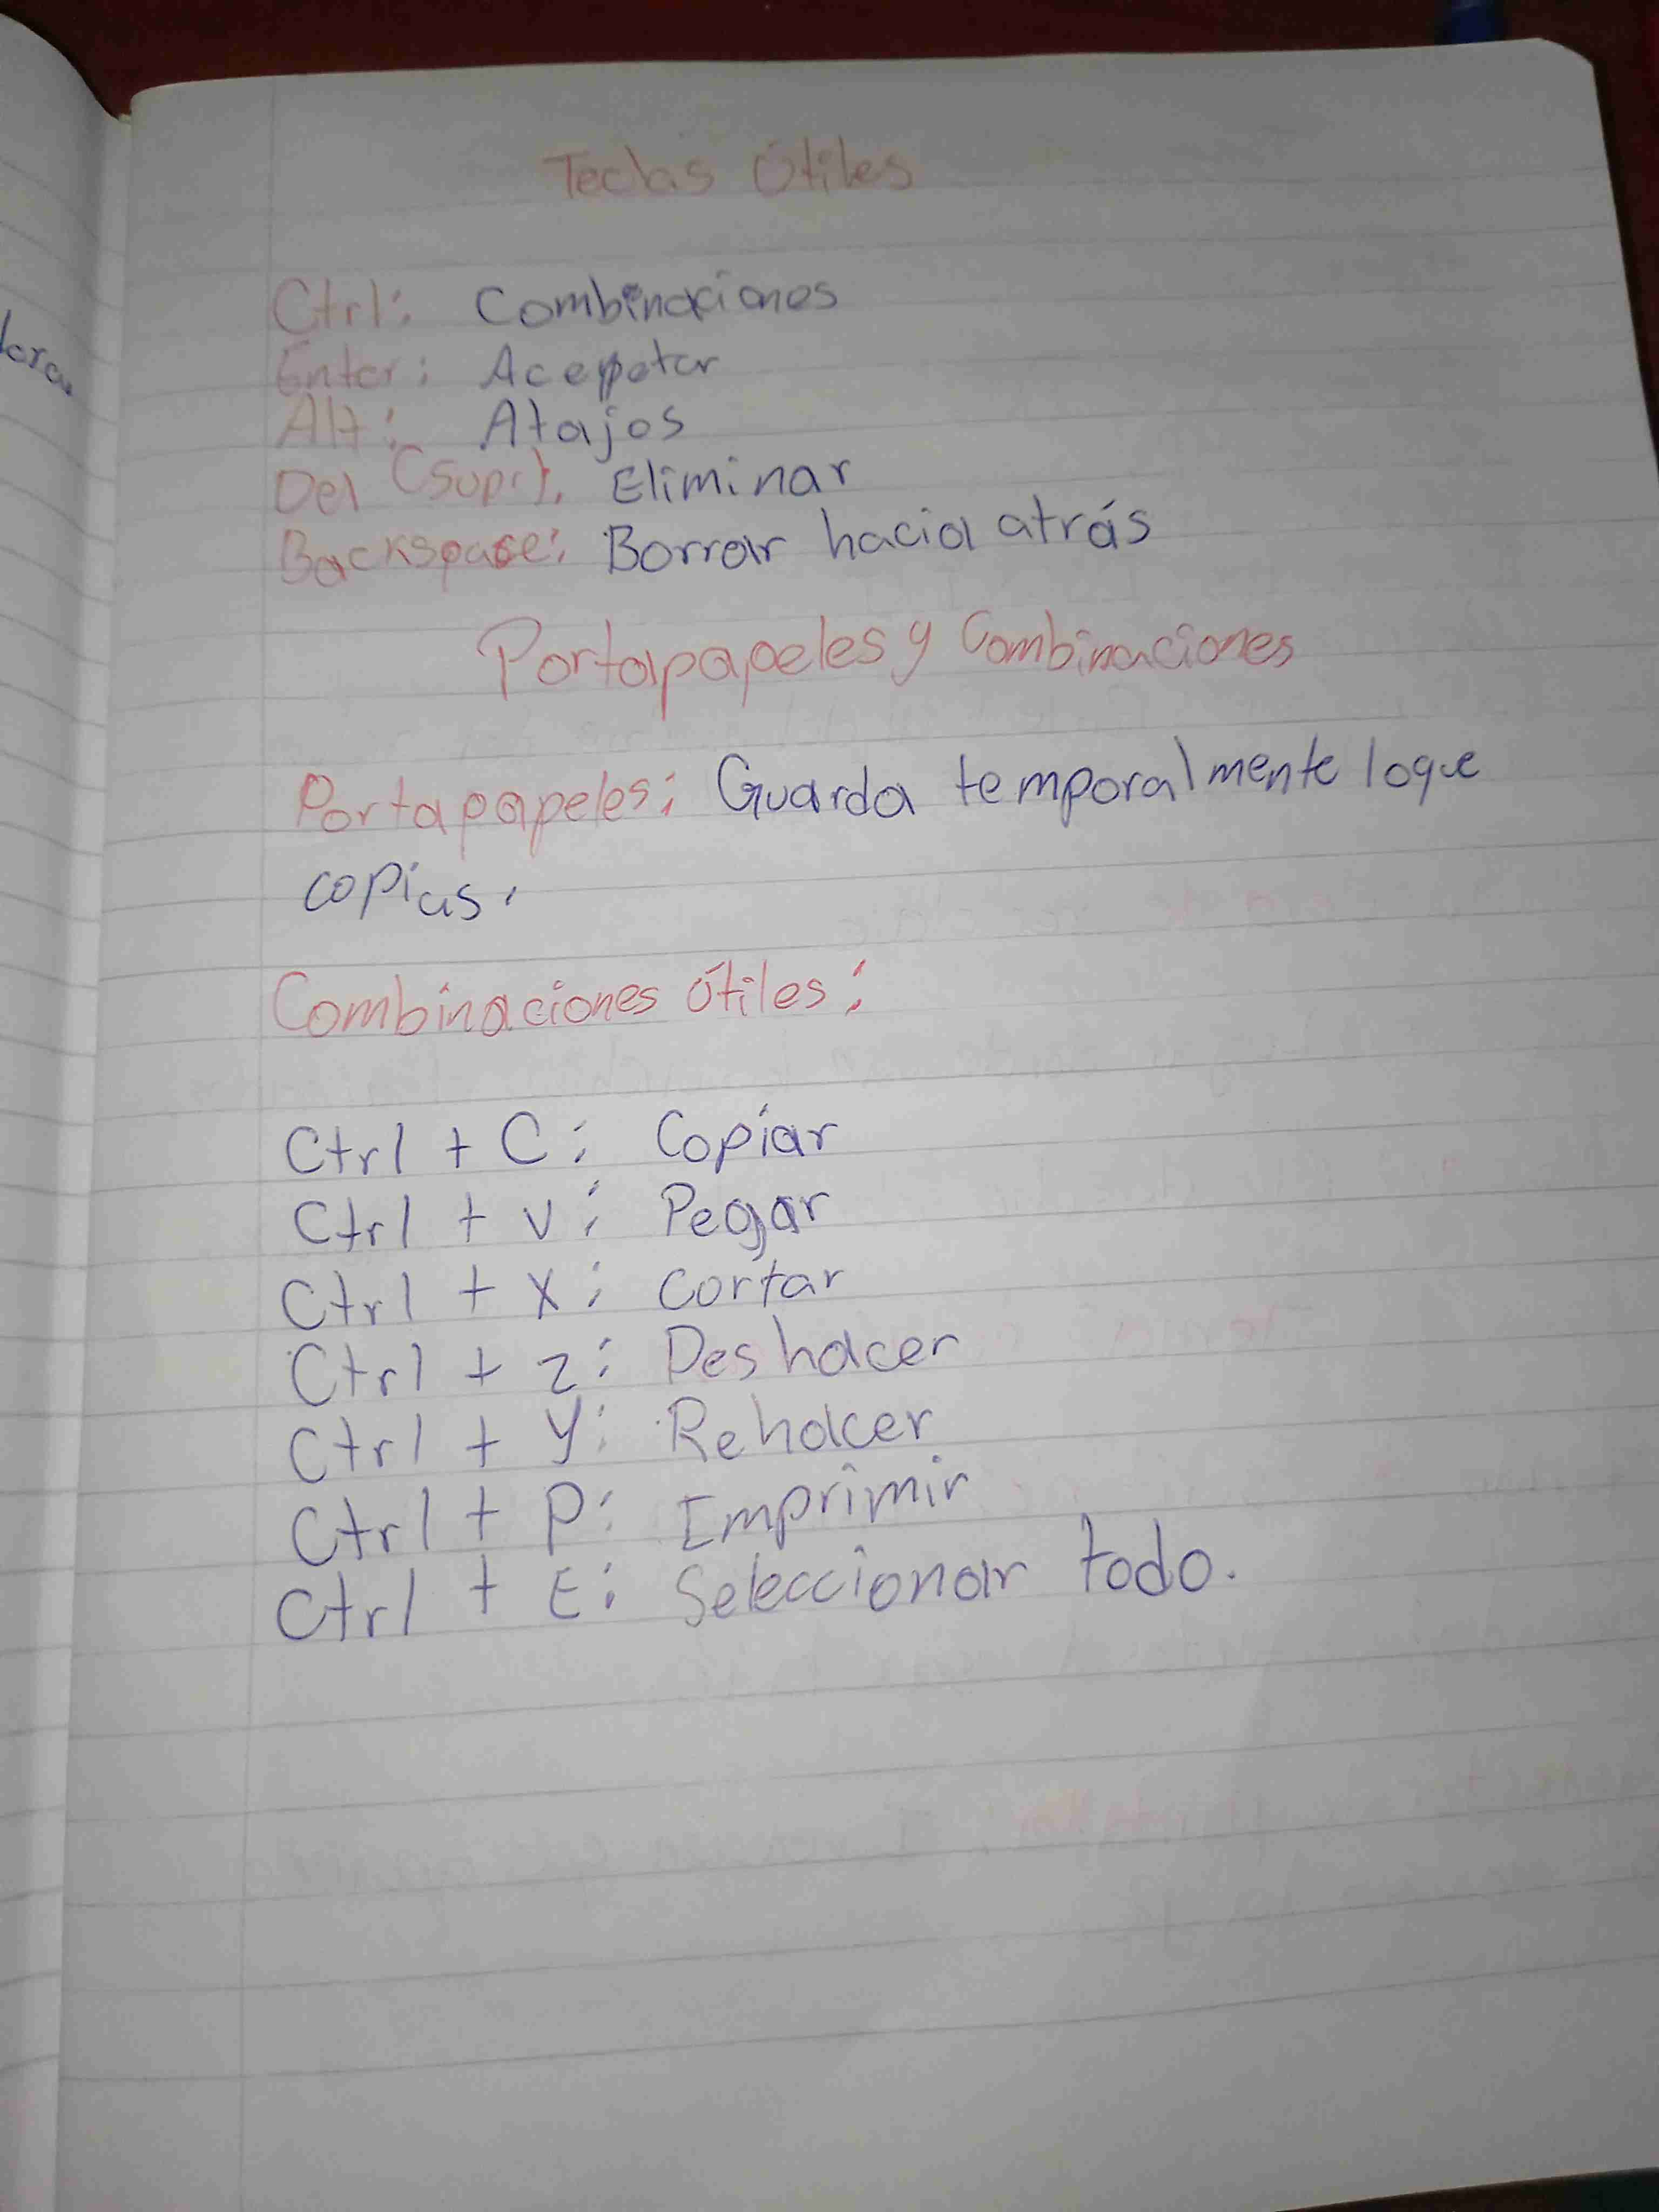 Teclas Útiles
Ctrl: Combinaciones
Enter: Aceptar
Alt: Atajos
Del (Supr): Eliminar
Backspace: Borrar hacia atrás
Portapapeles y Combinaciones
Portapapeles: Guarda temporalmente loque
copias.
Combinaciones Útiles:
Ctrl + C: Copiar
Ctrl + v: Pegar
Ctrl + x: Cortar
Ctrl + z: Deshacer
Ctrl + y: Rehacer
Ctrl + P: Imprimir
Ctrl + E: Seleccionar todo.